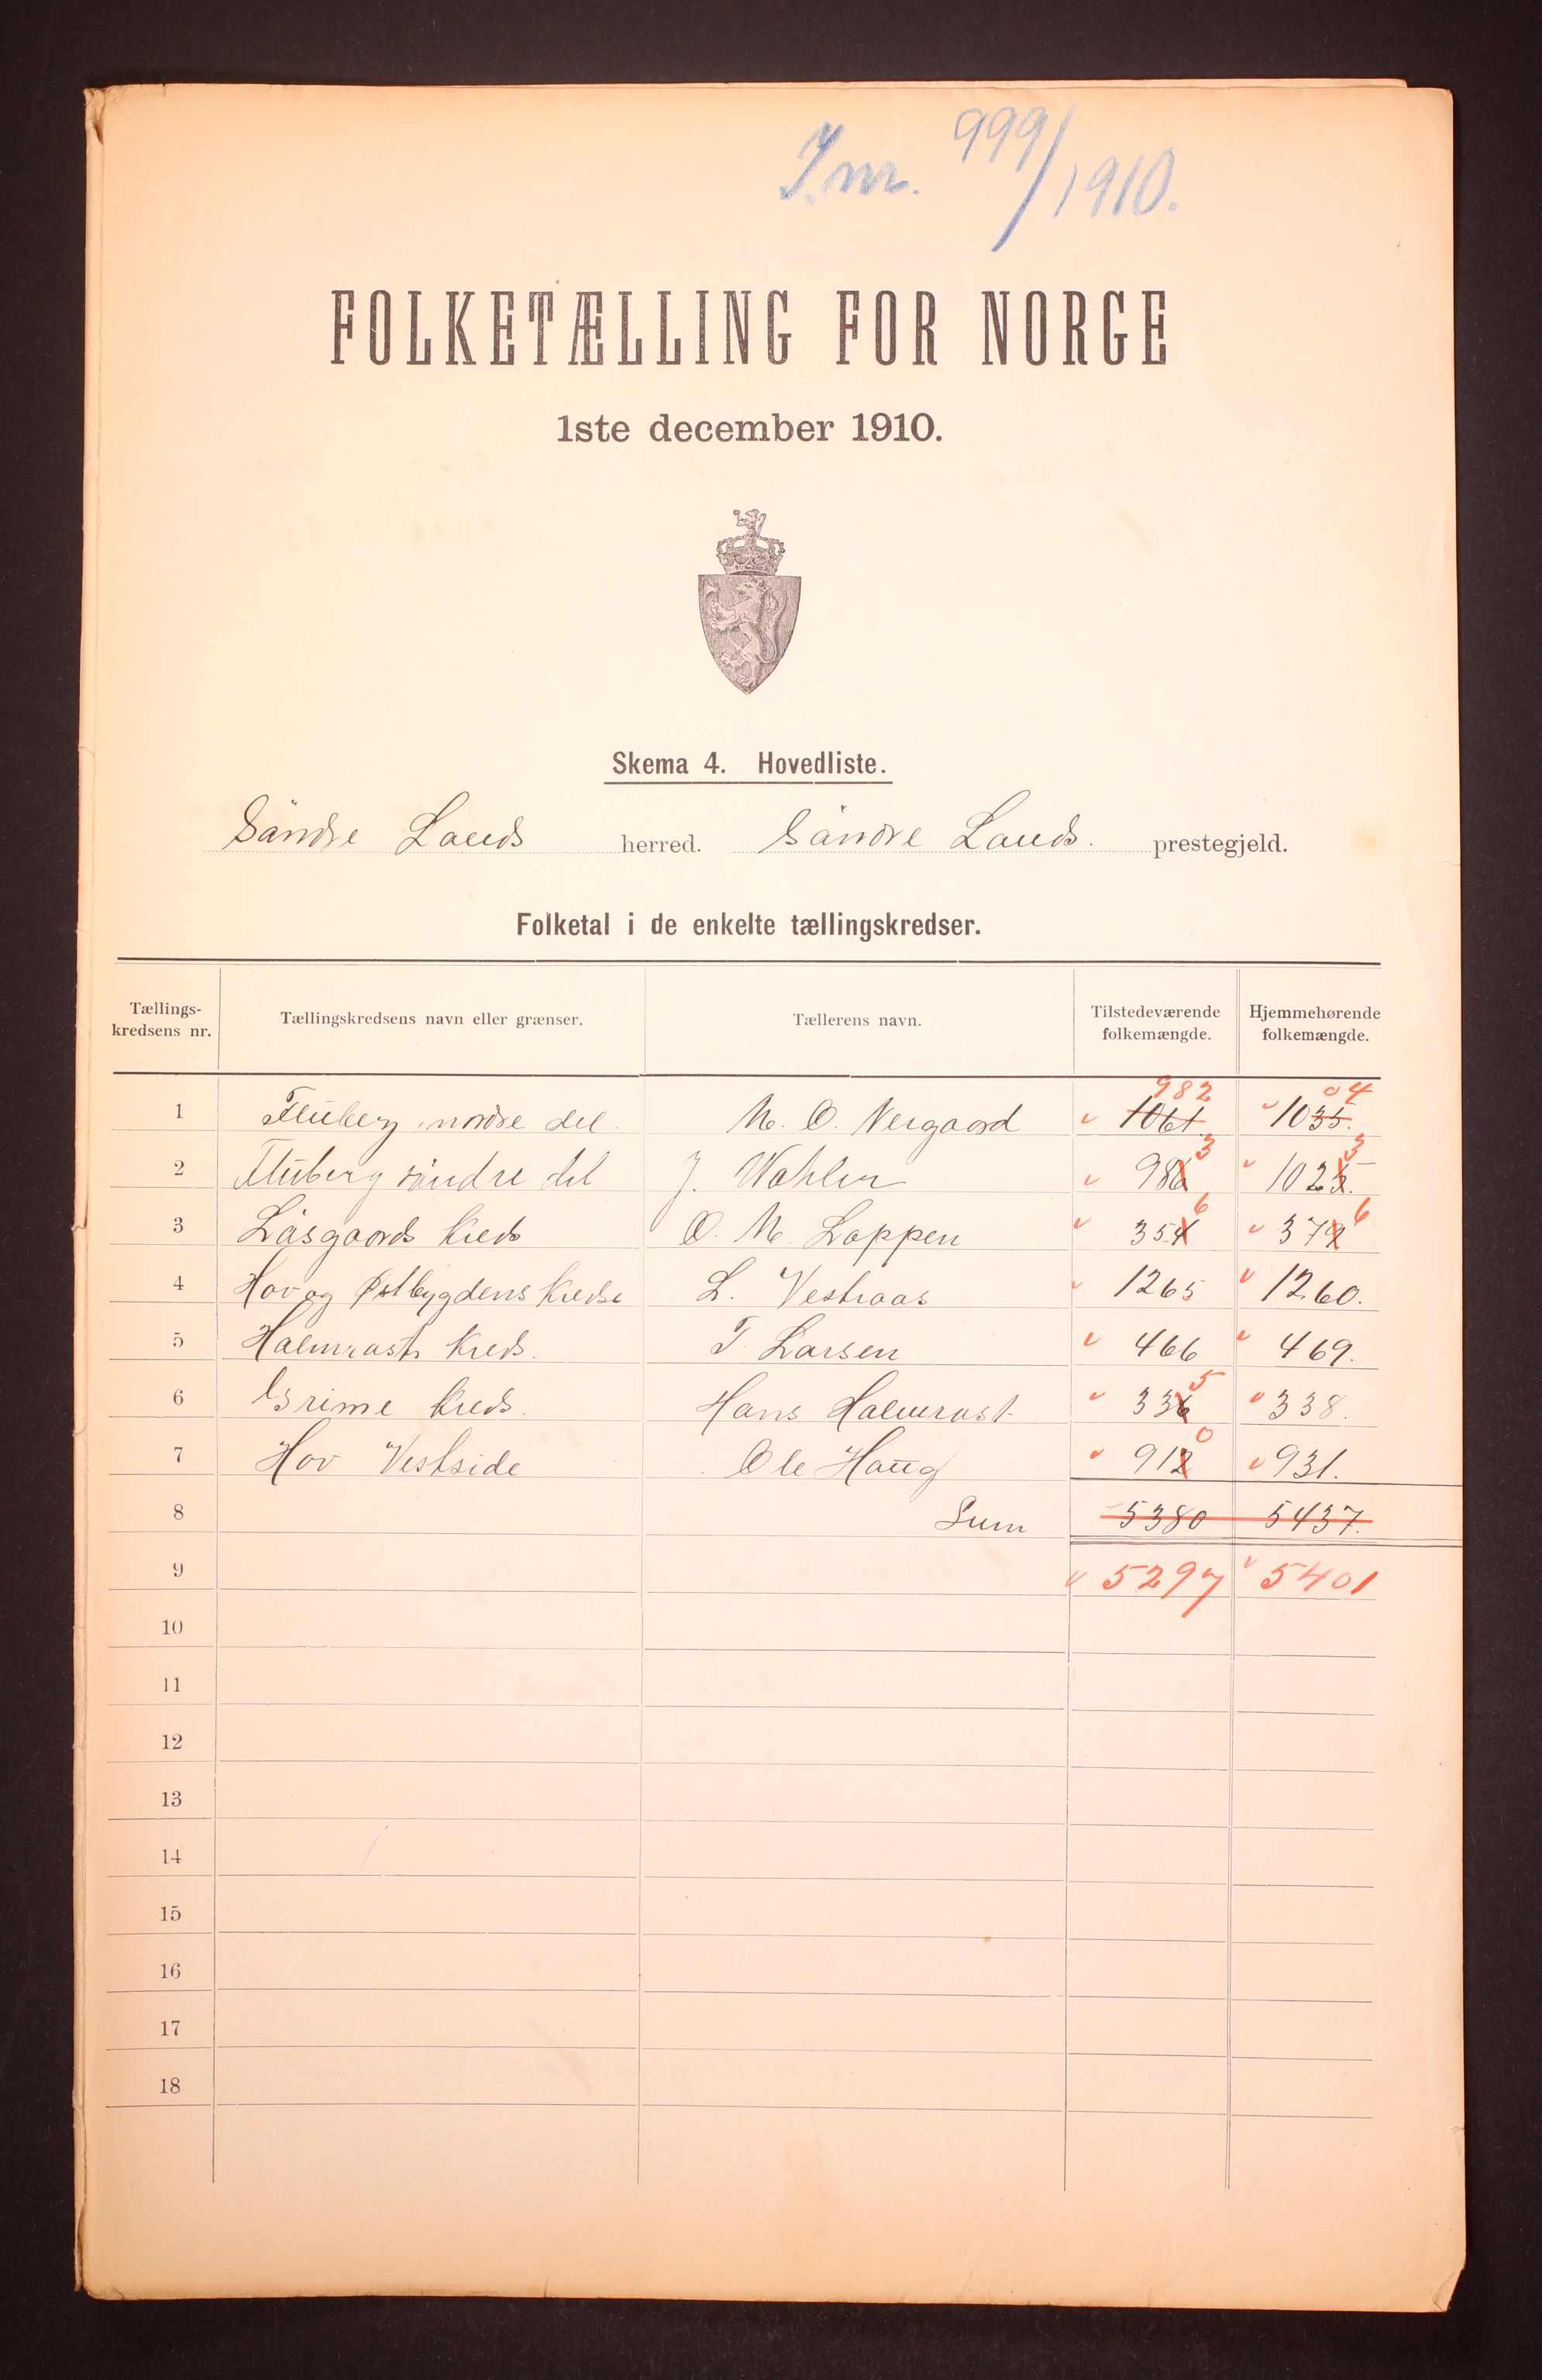 J.nr. 999/1910.
FOLKETÆLLING FOR NORGE
1ste december 1910.
Skema 4. Hovedliste.
Söndre Lands herred. Söndre Lands. prestegjeld.
Folketal i de enkelte tællingskredser.
Tællings-
kredsens nr.
Tællingskredsens navn eller grænser.
Tællerens navn.
Tilstedeværende
folkemængde.
Hjemmehørende
folkemængde.
982 04
1 Fluberg nordre del. M. O. Nergaard 1061 1035.
3 3
2 Fluberg söndre del J. Wøhler 986 1025.
6 6
3 Låsgaards Kreds O. M. Lappen 354 379
4 Hov og Østbygdens Kredse L. Vestraas 1265 1260.
5 Halmrasts Kreds. T. Larsen 466 469.
5
6 Grime Kreds. Hans Halmrast 336 338.
0
7 Hov Vestside Ole Haug 912 931.
8 Sum 5380 5437.
9 5297 5401
10
11
12
13
14
15
16
17
18